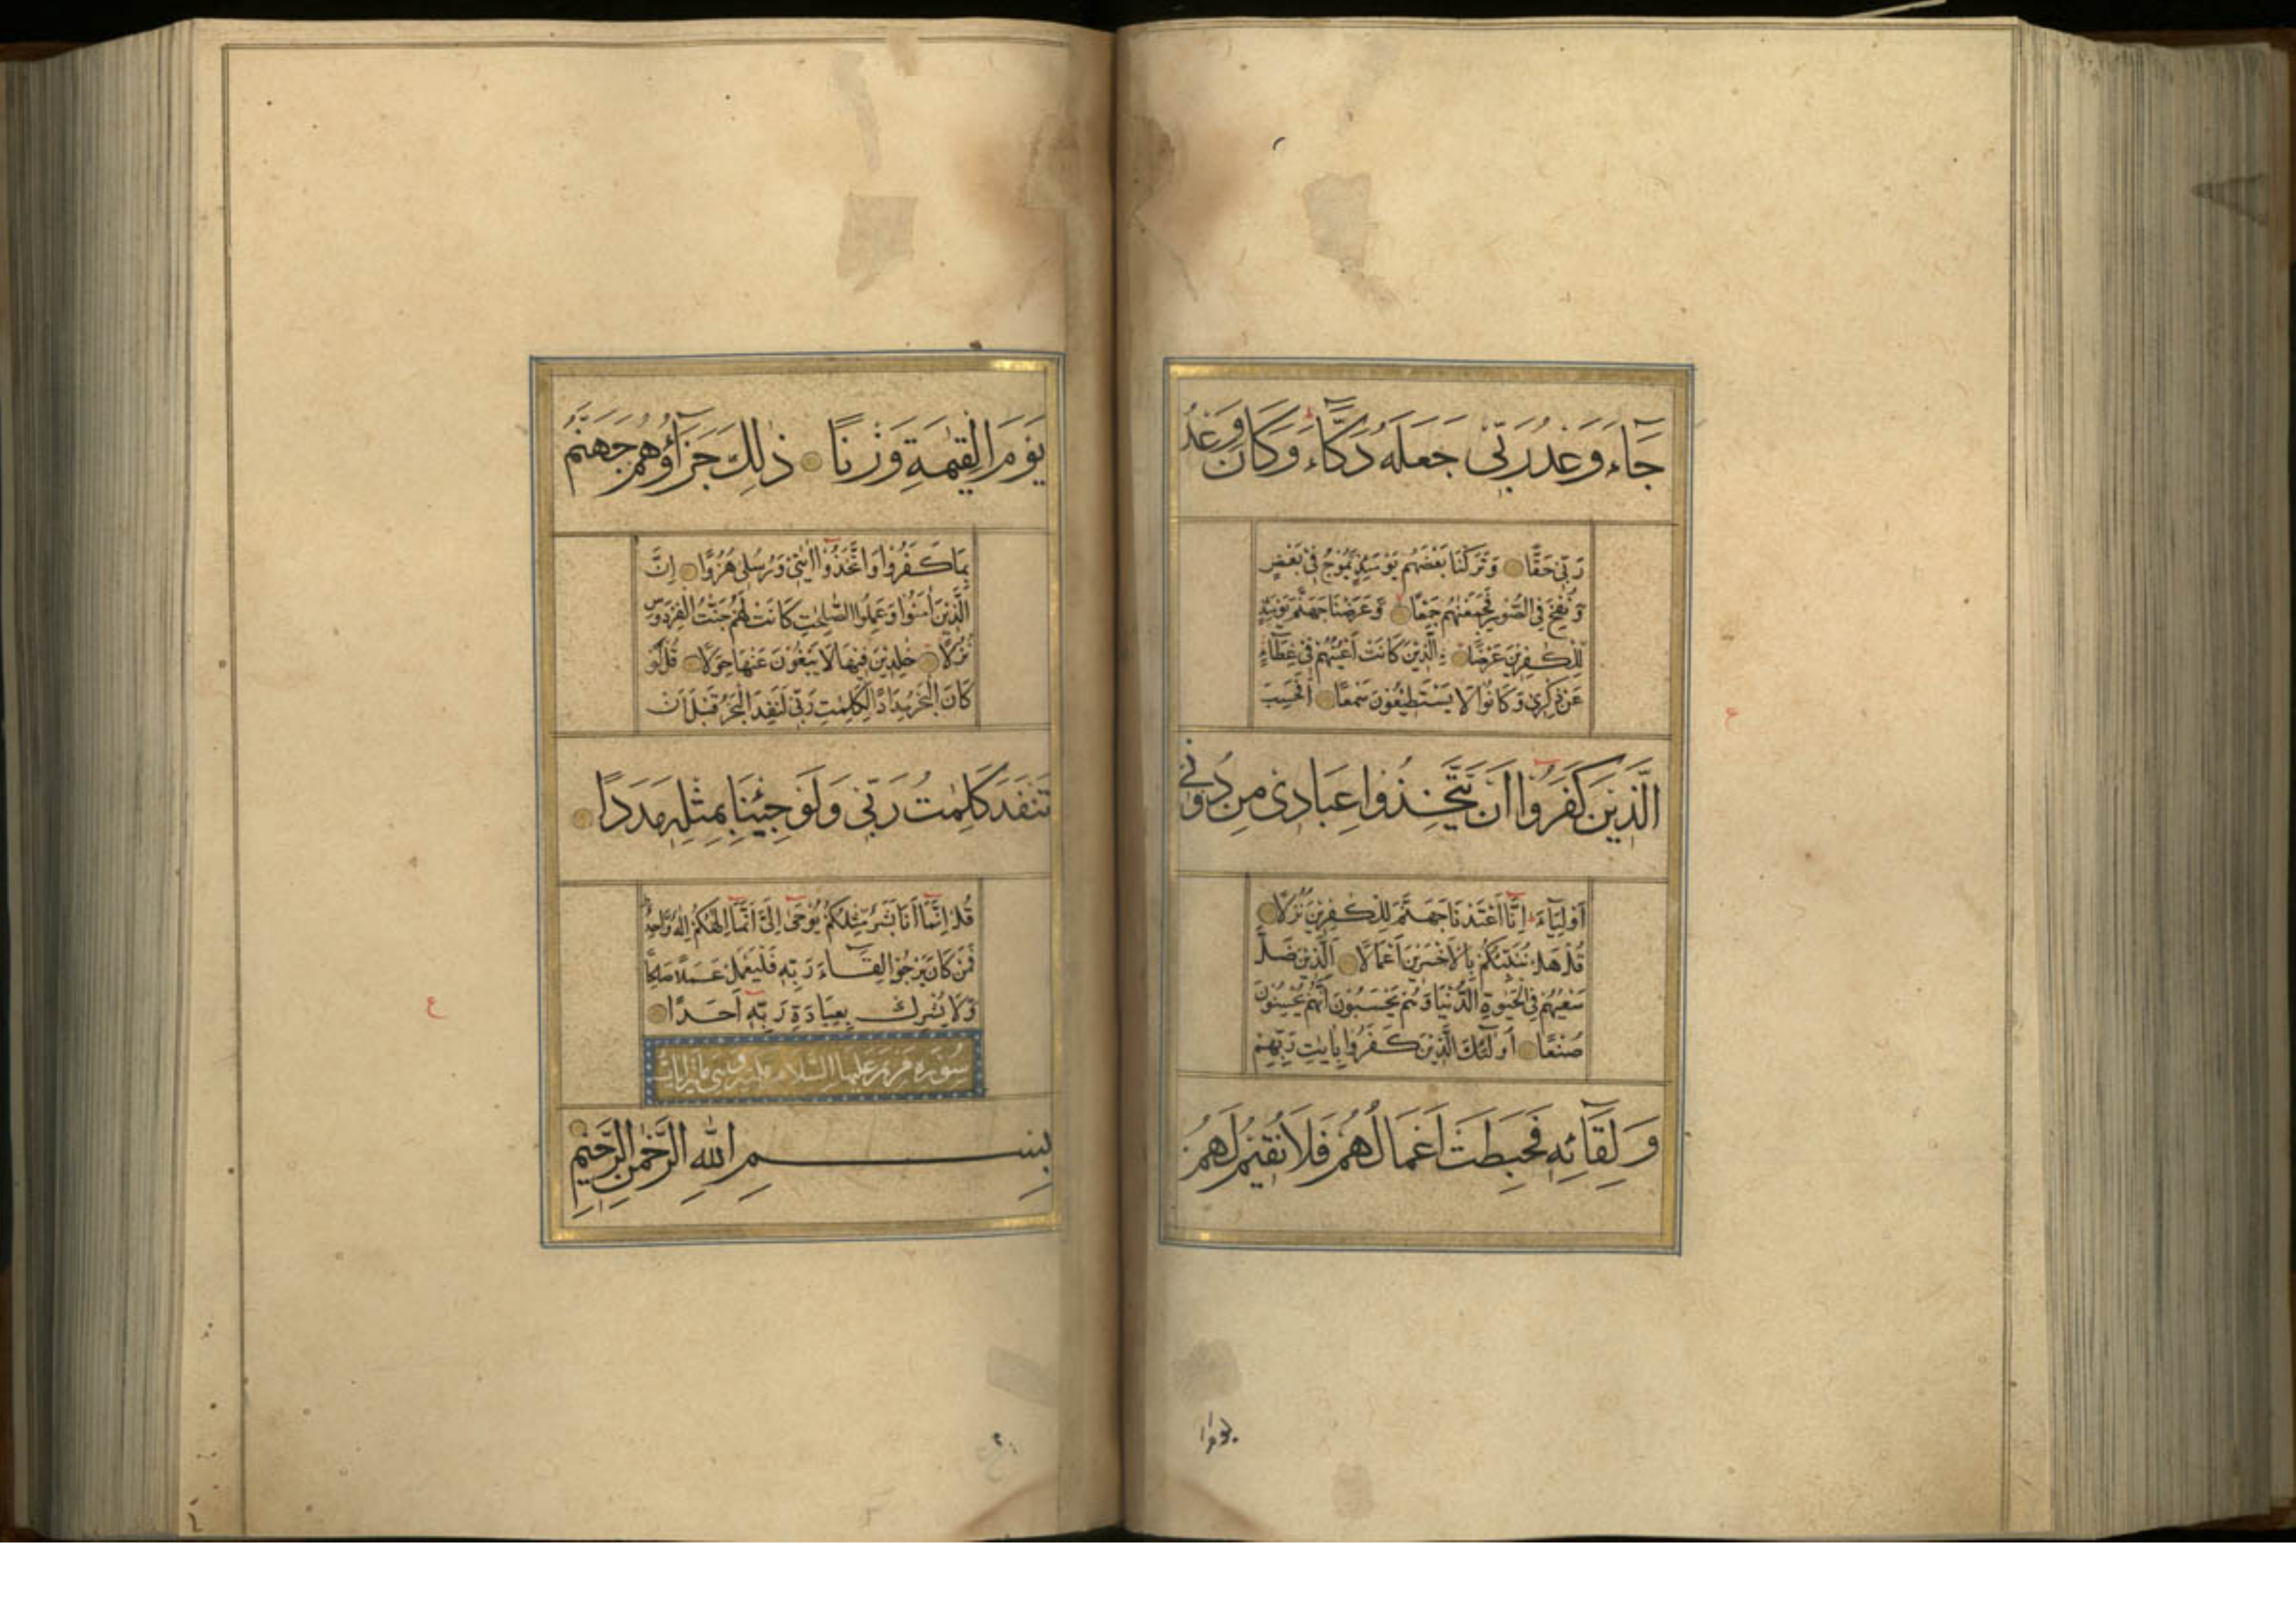 جَاءَ وَعْدُ رَبِّى جَعَلَهُ دَكَّاءَ وَكَانَ وَعْدُ
رَبِّى حَقًّا وَتَرَكْنَا بَعْضَهُمْ يَوْمَئِذٍ يَمُوجُ فِى بَعْضٍ
وَنُفِخَ فِى الصُّورِ فَجَمَعْنٰهُمْ جَمْعًا وَعَرَضْنَا جَهَنَّمَ يَوْمَئِذٍ
لِلْكٰفِرِينَ عَرْضًا الَّذِينَ كَانَتْ أَعْيُنُهُمْ فِى غِطَآءٍ
عَنْ ذِكْرِى وَكَانُوا لَا يَسْتَطِيعُونَ سَمْعًا أَفَحَسِبَ
الَّذِينَ كَفَرُوا أَنْ يَتَّخِذُوا عِبَادِى مِنْ دُونِى
أَوْلِيَآءَ إِنَّا أَعْتَدْنَا جَهَنَّمَ لِلْكٰفِرِينَ نُزُلًا
قُلْ هَلْ نُنَبِّئُكُمْ بِالْأَخْسَرِينَ أَعْمَالًا الَّذِينَ ضَلَّ
سَعْيُهُمْ فِى الْحَيٰوةِ الدُّنْيَا وَهُمْ يَحْسَبُونَ أَنَّهُمْ يُحْسِنُونَ
صُنْعًا أُولٰٓئِكَ الَّذِينَ كَفَرُوا بِاٰيٰتِ رَبِّهِمْ
وَلِقَآئِهِ فَحَبِطَتْ أَعْمَالُهُمْ فَلَا نُقِيمُ لَهُمْ
يَوْمَ الْقِيٰمَةِ وَزْنًا ذٰلِكَ جَزَآؤُهُمْ جَهَنَّمُ
بِمَا كَفَرُوا وَاتَّخَذُوا اٰيٰتِى وَرُسُلِى هُزُوًا إِنَّ
الَّذِينَ اٰمَنُوا وَعَمِلُوا الصّٰلِحٰتِ كَانَتْ لَهُمْ جَنّٰتُ الْفِرْدَوْسِ
نُزُلًا خٰلِدِينَ فِيهَا لَا يَبْغُونَ عَنْهَا حِوَلًا قُلْ لَوْ
كَانَ الْبَحْرُ مِدَادًا لِكَلِمٰتِ رَبِّى لَنَفِدَ الْبَحْرُ قَبْلَ أَنْ
تَنْفَدَ كَلِمٰتُ رَبِّى وَلَوْ جِئْنَا بِمِثْلِهِ مَدَدًا
قُلْ إِنَّمَآ أَنَا بَشَرٌ مِثْلُكُمْ يُوحٰٓى إِلَىَّ أَنَّمَآ إِلٰهُكُمْ إِلٰهٌ وَاحِدٌ
فَمَنْ كَانَ يَرْجُوا لِقَآءَ رَبِّهِ فَلْيَعْمَلْ عَمَلًا صَالِحًا
وَلَا يُشْرِكْ بِعِبَادَةِ رَبِّهِ أَحَدًا
سُورَة مَرْيَم عَلَيْهَا السَّلَام
بِسْمِ اللهِ الرَّحْمٰنِ الرَّحِيمِ